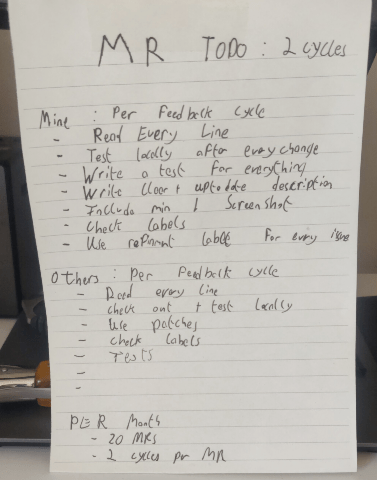 MR TODO : 2 cycles
Mine : Per Feedback cycle
- Read Every Line
- Test locally after every change
- Write a test for everything
- Write clear + uptodate description
- Include min 1 Screenshot
- Check Labels
- Use refinment label For every issue
Others : Per Feedback cycle
- Read every line
- check out + test locally
- Use patches
- check Labels
- Tests
-
-
PER Month
- 20 MRs
- 2 cycles per MR